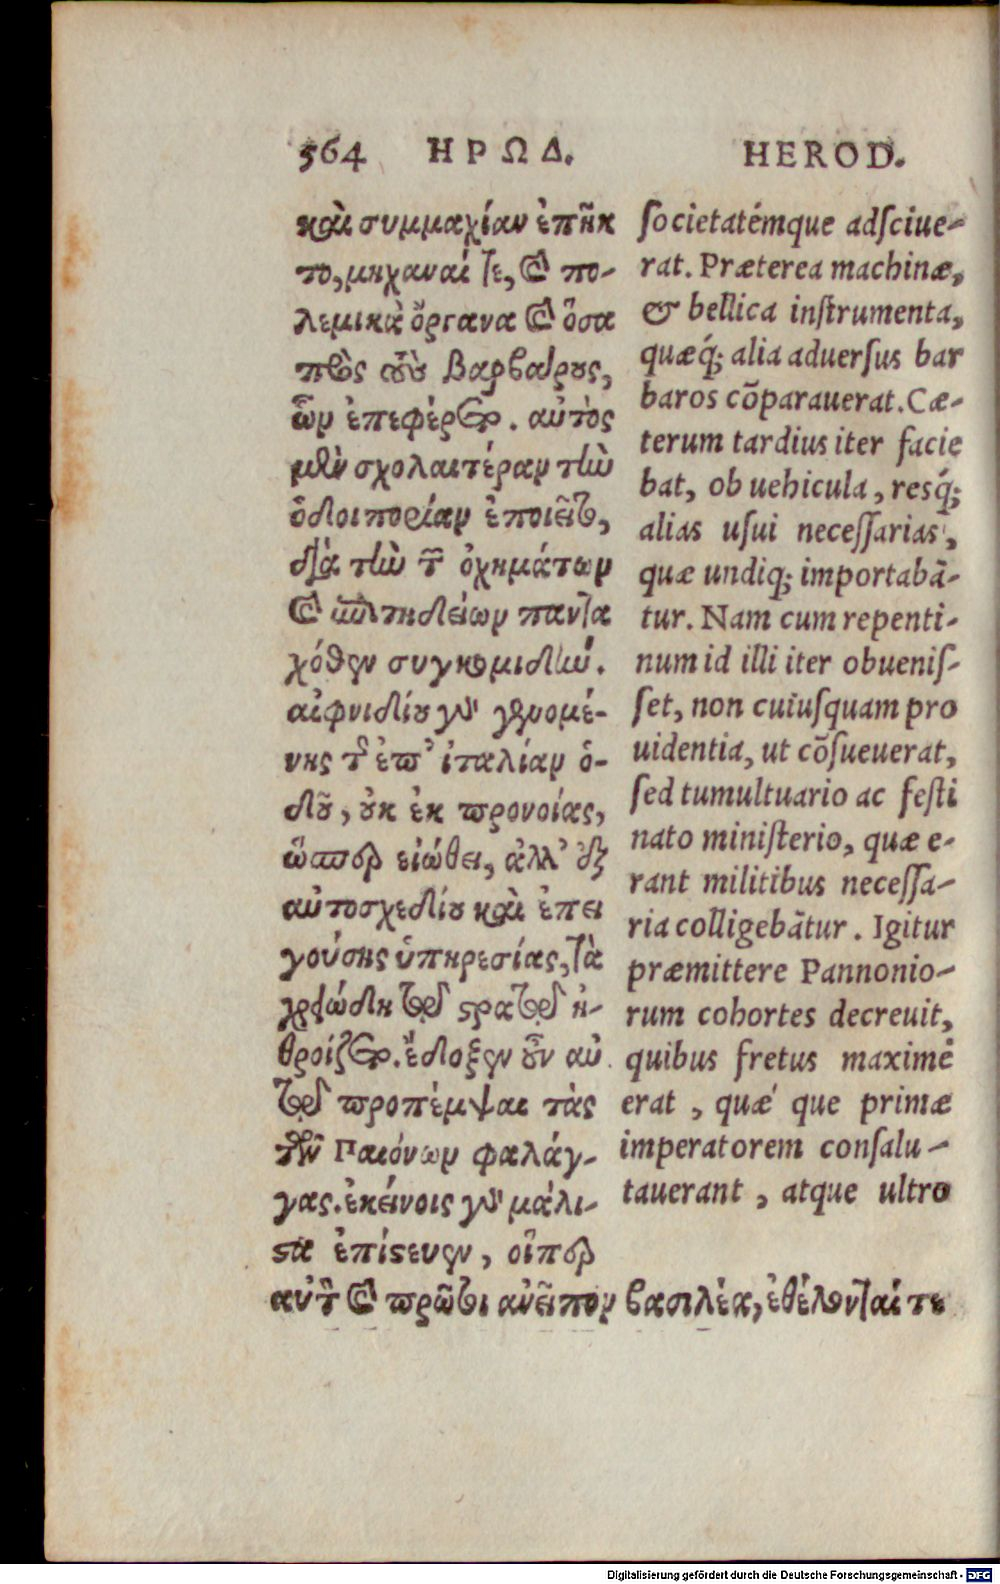 564 ΗΡΩΔ.
καὶ συμμαχίαν ἐπῆκ
το, μηχαναί τε, καὶ πο-
λεμικὰ ὄργανα καὶ ὅσα
πρὸς τοὺς βαρβάρους,
ὧν ἐπεφέρετο. αὐτὸς
μὲν σχολαιτέραν τὴν
ὁδοιπορίαν ἐποιεῖτο,
διὰ τὴν τῶν ὀχημάτων
καὶ ἐπιτηδείων παντα
χόθεν συγκομιδήν.
αἰφνιδίου γὰρ γενομέ-
νης τῆς ἐπ' ἰταλίαν ὁ-
δοῦ, οὐκ ἐκ προνοίας,
ὥσπερ εἰώθει, ἀλλ' ἐξ
αὐτοσχεδίου καὶ ἐπει
γούσης ὑπηρεσίας, τὰ
χρειώδη τοῦ στρατοῦ ἠ-
θροίζετο. ἔδοξεν οὖν αὐ
τῷ προπέμψαι τὰς
τῶν Παιόνων φαλάγ-
γας. ἐκείνοις γὰρ μάλι-
στα ἐπίστευεν, οἵπερ
αὐτὸν καὶ πρῶτοι ἀνεῖπον βασιλέα, ἐθέλονταί τε
HEROD.
societatémque adsciue-
rat. Præterea machinæ,
& bellica instrumenta,
quæq́; alia aduersus bar
baros cōparauerat. Cæ-
terum tardius iter facie
bat, ob uehicula, resq́;
alias usui necessarias,
quæ undiq; importabā-
tur. Nam cum repenti-
num id illi iter obuenis-
set, non cuiusquam pro
uidentia, ut cōsueuerat,
sed tumultuario ac festi
nato ministerio, quæ e-
rant militibus necessa-
ria colligebātur. Igitur
præmittere Pannonio-
rum cohortes decreuit,
quibus fretus maximè
erat, quǽ que primæ
imperatorem consalu-
tauerant, atque ultro
Digitalisierung gefördert durch die Deutsche Forschungsgemeinschaft - DFG